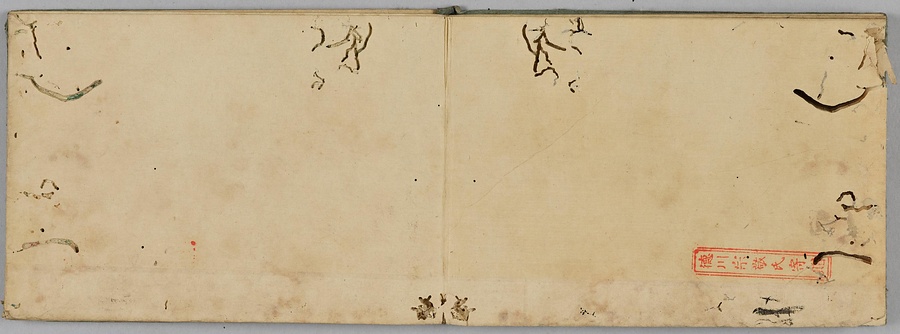 德川宗敬氏寄贈